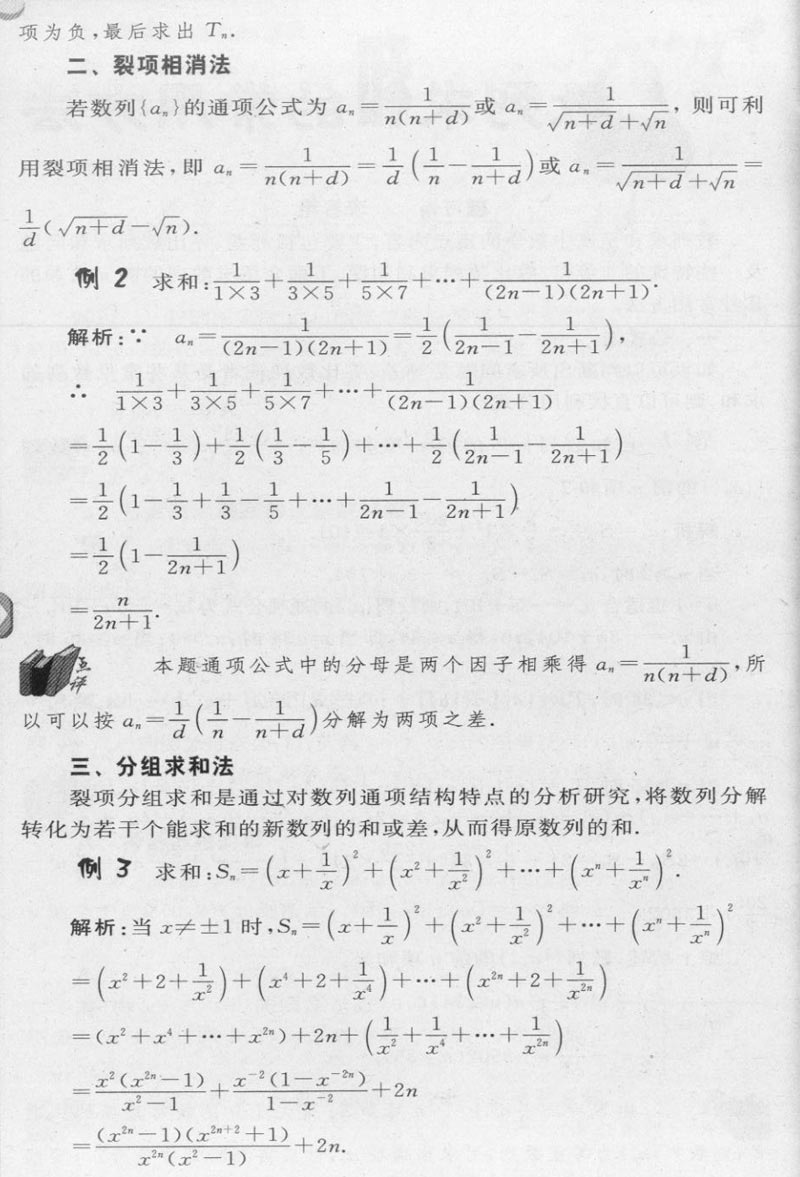 项为负,最后求出 Tₙ.
二、裂项相消法
若数列{aₙ}的通项公式为 aₙ=1/(n(n+d))或 aₙ=1/(√(n+d)+√n), 则可利
用裂项相消法,即 aₙ=1/(n(n+d))=1/d(1/n-1/(n+d))或 aₙ=1/(√(n+d)+√n)=
1/d(√(n+d)-√n).
例 2 求和:1/(1×3)+1/(3×5)+1/(5×7)+⋯+1/((2n-1)(2n+1)).
解析:∵ aₙ=1/((2n-1)(2n+1))=1/2(1/(2n-1)-1/(2n+1)),
∴ 1/(1×3)+1/(3×5)+1/(5×7)+⋯+1/((2n-1)(2n+1))
=1/2(1-1/3)+1/2(1/3-1/5)+⋯+1/2(1/(2n-1)-1/(2n+1))
=1/2(1-1/3+1/3-1/5+⋯+1/(2n-1)-1/(2n+1))
=1/2(1-1/(2n+1))
=n/(2n+1).
点评 本题通项公式中的分母是两个因子相乘得 aₙ=1/(n(n+d)),所
以可以按 aₙ=1/d(1/n-1/(n+d))分解为两项之差.
三、分组求和法
裂项分组求和是通过对数列通项结构特点的分析研究,将数列分解
转化为若干个能求和的新数列的和或差,从而得原数列的和.
例 3 求和:Sₙ=(x+1/x)²+(x²+1/x²)²+⋯+(xⁿ+1/xⁿ)².
解析:当 x≠±1 时,Sₙ=(x+1/x)²+(x²+1/x²)²+⋯+(xⁿ+1/xⁿ)²
=(x²+2+1/x²)+(x⁴+2+1/x⁴)+⋯+(x²ⁿ+2+1/x²ⁿ)
=(x²+x⁴+⋯+x²ⁿ)+2n+(1/x²+1/x⁴+⋯+1/x²ⁿ)
=x²(x²ⁿ-1)/(x²-1)+x⁻²(1-x⁻²ⁿ)/(1-x⁻²)+2n
=(x²ⁿ-1)(x²ⁿ⁺²+1)/(x²ⁿ(x²-1))+2n.